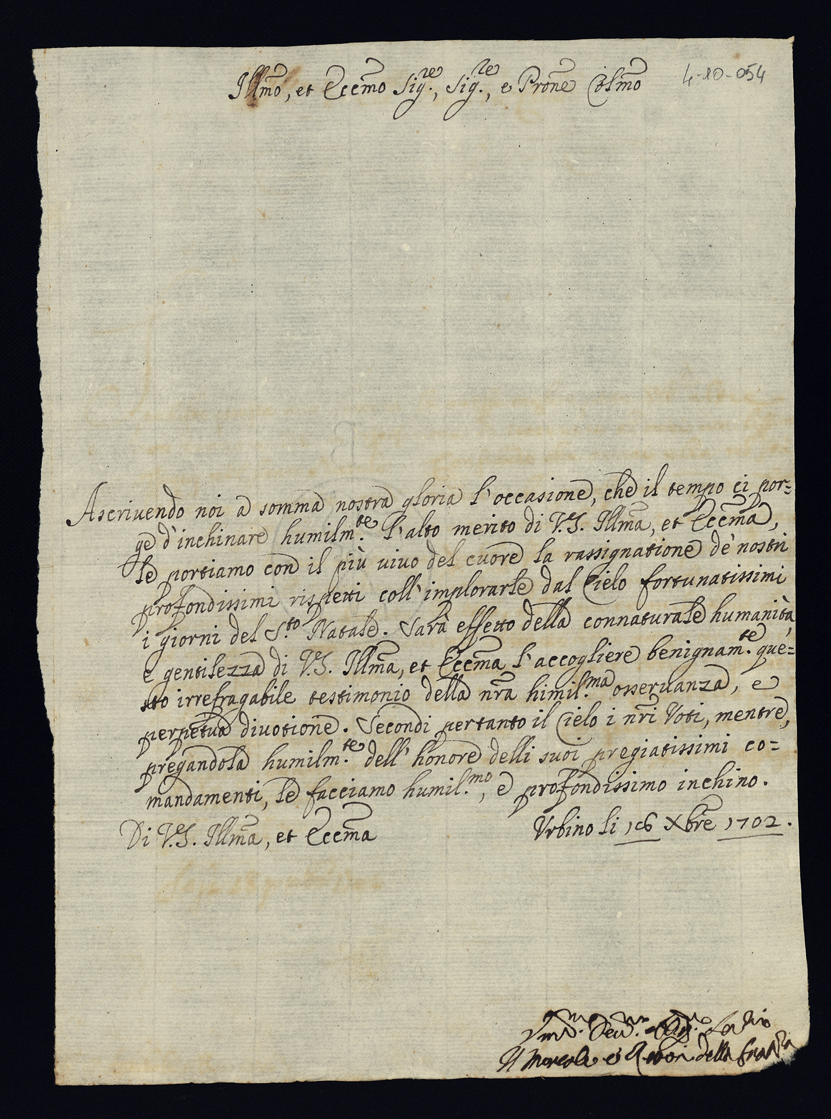 Illmo, et Eccmo Sig.re, Sig.re, e Prone Colmo
4-10-054
Ascrivendo noi a somma nostra gloria l'occasione, che il tempo ci por=
ge d'inchinare humilm.te l'alto merito di V.S. Illma, et Eccma,
le portiamo con il più vivo del cuore la rassignatione de' nostri
profondissimi rispetti coll'implorarle dal Cielo fortunatissimi
i giorni del S.to Natale. Sarà effetto della connaturale humanità,
e gentilezza di V.S. Illma, et Eccma l'accogliere benignam.te que=
sto irrefragabile testimonio della nrã himil.ma osservanza, e
perpetua divotione. Secondi pertanto il Cielo i nrĩ Voti, mentre,
pregandola humilm.te dell'honore delli suoi pregiatissimi co=
mandamenti, le facciamo humil.mo, e profondissimo inchino.
Di V.S. Illma, et Eccma
Urbino li 16 Xbre 1702.
della